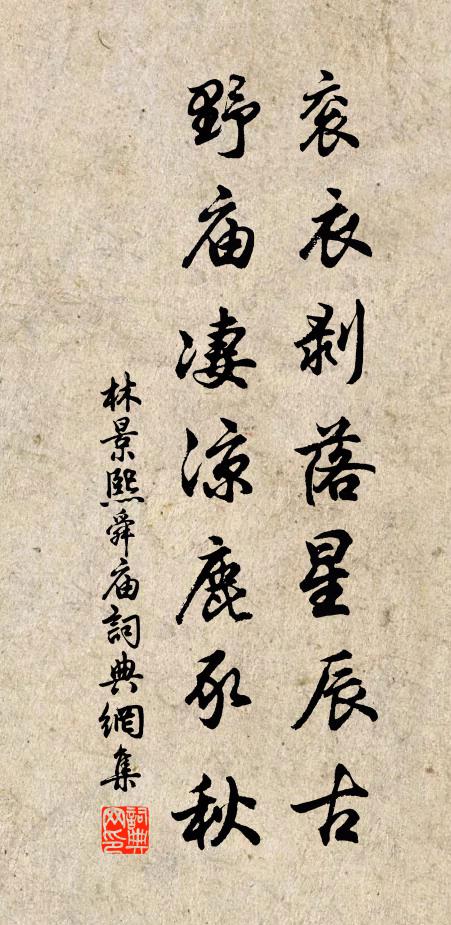 衮衣剥落星辰古
野庙凄涼鹿豕秋
林景熙舜庙詞典網集
詞典网印